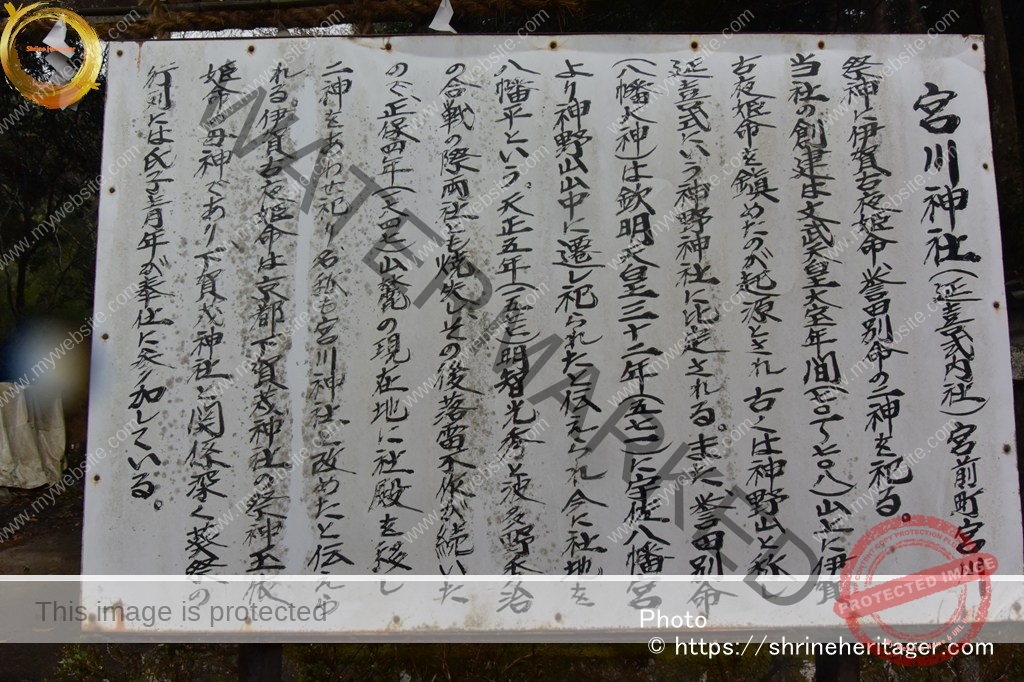 宮川神社(延喜式内社)宮前町宮川
祭神に伊賀古夜姫命 誉田別命の二神を祀る。
当社の創建は文武天皇大宝年間(七〇一〜七〇八)山上に伊賀
古夜姫命を鎮めたのが起源とされ 古くは神野山と称し
延喜式にいう神野神社に比定される。また誉田別命
(八幡大神)は欽明天皇三十二年(五七一)に宇佐八幡宮
より神野山山中に遷し祀られたと伝えられ 今に社地を
八幡平という。天正五年(一五七七)明智光秀と波多野秀治
の合戦の際両社とも焼失しその後落雷不作が続いた
ので、正保四年(一六四七)山麓の現在地に社殿を移し
二神をあわせ祀り、名称も宮川神社と改めたと伝えら
れる。伊賀古夜姫命は京都下賀茂神社の祭神玉依
姫命の母神であり下賀茂神社と関係深く葵祭の
行列には氏子青年が奉仕に参加している。
Shrine Heritager
WATERMARKED
www.mywebsite.com
This image is protected
Photo
© https://shrineheritager.com/